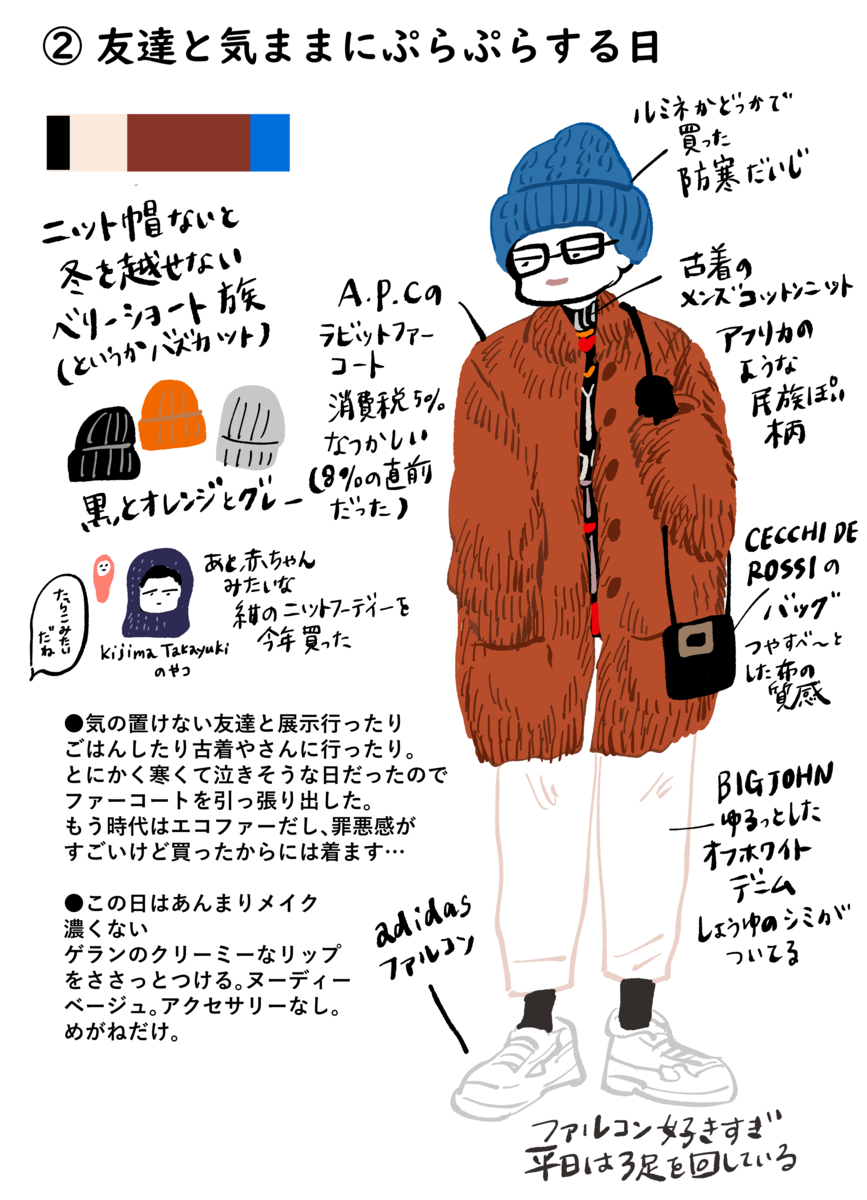 ② 友達と気ままにぷらぷらする日
ルミネかどっかで
買った
防寒だいじ
ニット帽ないと
冬を越せない
ベリーショート族
(というかバズカット)
黒とオレンジとグレー
A.P.Cの
ラビットファー
コート
消費税5%
なつかしい
(8%の直前
だった)
古着の
メンズコットンニット
アフリカの
ような
民族ぽい
柄
あと赤ちゃん
みたいな
紺のニットフーディーを
今年買った
たらこみたい
だね
Kijima Takayuki
のやつ
CECCHI DE
ROSSIの
バッグ
つやすべ〜と
した布の
質感
●気の置けない友達と展示行ったり
ごはんしたり古着やさんに行ったり。
とにかく寒くて泣きそうな日だったので
ファーコートを引っ張り出した。
もう時代はエコファーだし、罪悪感が
すごいけど買ったからには着ます…
●この日はあんまりメイク
濃くない
ゲランのクリーミーなリップ
をささっとつける。ヌーディー
ベージュ。アクセサリーなし。
めがねだけ。
BIG JOHN
ゆるっとした
オフホワイト
デニム
しょうゆのシミが
ついてる
adidas
ファルコン
ファルコン好きすぎ
平日は3足を回している